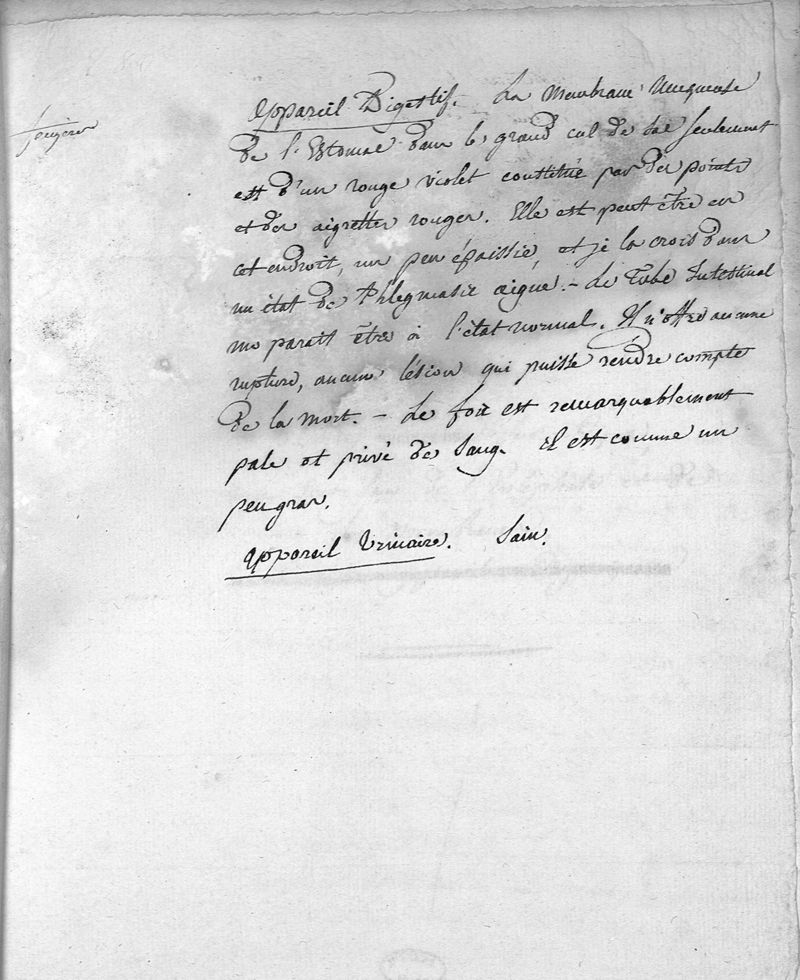 fougères
Appareil Digestif. La Membrane Muqueuse
de l'Estomac dans le grand cul de sac seulement
est d'un rouge violet constitué par des points
et des aigrettes rouges. Elle est peut être en
cet endroit, un peu épaissie, et je la crois dans
un état de Phlegmasie aigue. - Le Tube Intestinal
me parait être à l'état normal. Il n'offre aucune
rupture, aucune lésion qui puisse rendre compte
de la mort. - Le foie est remarquablement
pale et privé de Sang. Il est comme un
peu gras.
Appareil Urinaire. Sain.